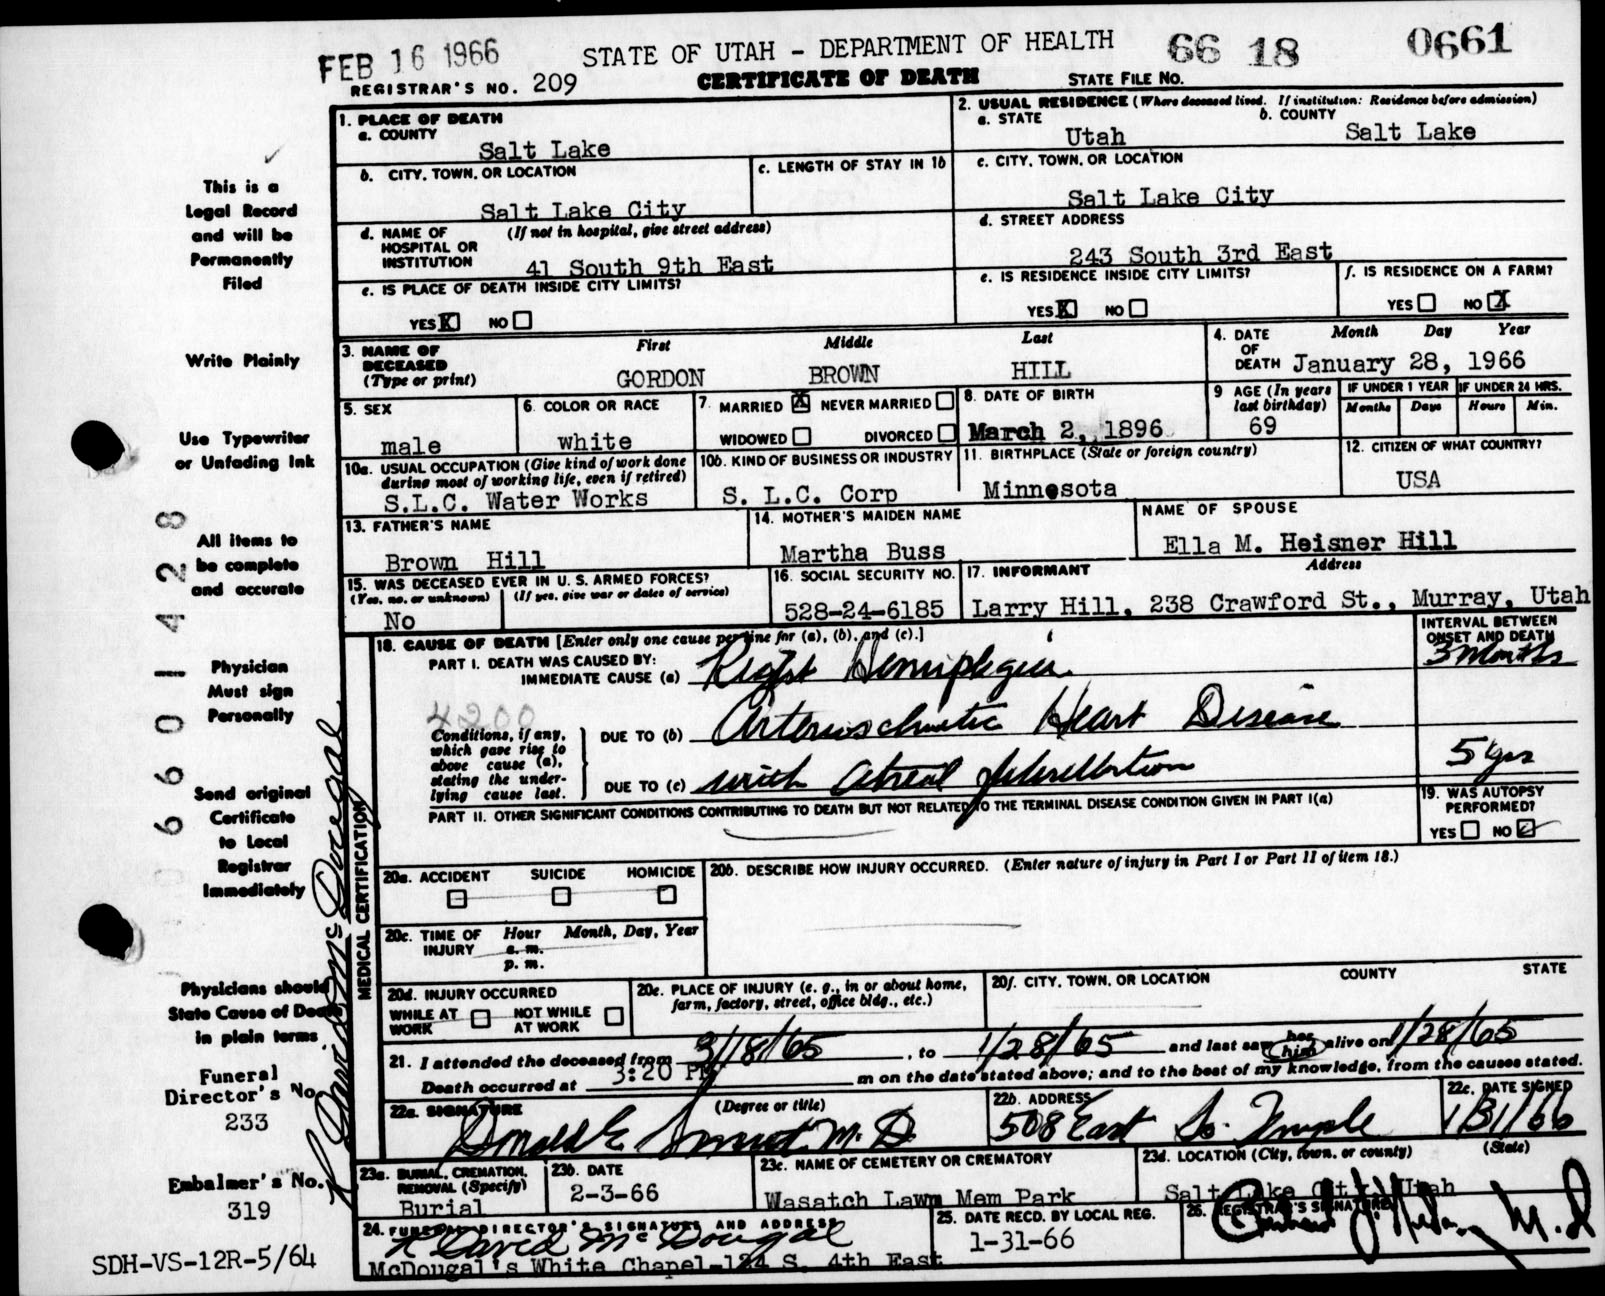 FEB 16 1966 STATE OF UTAH - DEPARTMENT OF HEALTH 66 18 0661
REGISTRAR'S NO. 209 CERTIFICATE OF DEATH STATE FILE NO.
1. PLACE OF DEATH
a. COUNTY
Salt Lake
2. USUAL RESIDENCE (Where deceased lived. If institution: Residence before admission)
a. STATE b. COUNTY
Utah Salt Lake
b. CITY, TOWN, OR LOCATION
Salt Lake City
c. LENGTH OF STAY IN 1b
c. CITY, TOWN, OR LOCATION
Salt Lake City
d. NAME OF HOSPITAL OR INSTITUTION (If not in hospital, give street address)
41 South 9th East
d. STREET ADDRESS
243 South 3rd East
e. IS PLACE OF DEATH INSIDE CITY LIMITS?
YES X NO
e. IS RESIDENCE INSIDE CITY LIMITS?
YES X NO
f. IS RESIDENCE ON A FARM?
YES NO X
3. NAME OF DECEASED (Type or print)
First Middle Last
GORDON BROWN HILL
4. DATE OF DEATH Month Day Year
January 28, 1966
5. SEX
male
6. COLOR OR RACE
white
7. MARRIED X NEVER MARRIED
WIDOWED DIVORCED
8. DATE OF BIRTH
March 2, 1896
9 AGE (In years last birthday)
69
IF UNDER 1 YEAR IF UNDER 24 HRS.
Months Days Hours Min.
10a. USUAL OCCUPATION (Give kind of work done during most of working life, even if retired)
S.L.C. Water Works
10b. KIND OF BUSINESS OR INDUSTRY
S. L.C. Corp
11. BIRTHPLACE (State or foreign country)
Minnesota
12. CITIZEN OF WHAT COUNTRY?
USA
13. FATHER'S NAME
Brown Hill
14. MOTHER'S MAIDEN NAME
Martha Buss
NAME OF SPOUSE
Ella M. Heisner Hill
15. WAS DECEASED EVER IN U. S. ARMED FORCES?
(Yes, no, or unknown) (If yes, give war or dates of service)
No
16. SOCIAL SECURITY NO.
528-24-6185
17. INFORMANT Address
Larry Hill, 238 Crawford St., Murray, Utah
MEDICAL CERTIFICATION
18. CAUSE OF DEATH [Enter only one cause per line for (a), (b), and (c).]
PART I. DEATH WAS CAUSED BY:
IMMEDIATE CAUSE (a) Right Hemiplegia
INTERVAL BETWEEN ONSET AND DEATH
3 months
4200
Conditions, if any, which gave rise to above cause (a), stating the underlying cause last.
DUE TO (b) Arteriosclerotic Heart Disease
DUE TO (c) with atreal fibrillation
5 yrs
PART II. OTHER SIGNIFICANT CONDITIONS CONTRIBUTING TO DEATH BUT NOT RELATED TO THE TERMINAL DISEASE CONDITION GIVEN IN PART I(a)
19. WAS AUTOPSY PERFORMED?
YES NO
20a. ACCIDENT SUICIDE HOMICIDE
20b. DESCRIBE HOW INJURY OCCURRED. (Enter nature of injury in Part I or Part II of item 18.)
20c. TIME OF INJURY Hour Month, Day, Year
a. m.
p. m.
20d. INJURY OCCURRED
WHILE AT WORK NOT WHILE AT WORK
20e. PLACE OF INJURY (e. g., in or about home, farm, factory, street, office bldg., etc.)
20f. CITY, TOWN, OR LOCATION COUNTY STATE
21. I attended the deceased from 3/18/65, to 1/28/65 and last saw her him alive on 1/28/65
Death occurred at 3:20 PM m on the date stated above; and to the best of my knowledge, from the causes stated.
22a. SIGNATURE (Degree or title)
Donald E M. D.
22b. ADDRESS
508 East So. Temple
22c. DATE SIGNED
1/31/66
23a. BURIAL, CREMATION, REMOVAL (Specify)
Burial
23b. DATE
2-3-66
23c. NAME OF CEMETERY OR CREMATORY
Wasatch Lawn Mem Park
23d. LOCATION (City, town, or county) (State)
Salt Lake City Utah
24. FUNERAL DIRECTOR'S SIGNATURE AND ADDRESS
R David McDougal
McDougal's White Chapel-124 S. 4th East
25. DATE RECD. BY LOCAL REG.
1-31-66
26. REGISTRAR'S SIGNATURE
M. D
This is a
Legal Record
and will be
Permanently
Filed
Write Plainly
Use Typewriter
or Unfading Ink
All items to
be complete
and accurate
Physician
Must sign
Personally
Send original
Certificate
to Local
Registrar
Immediately
Physicians should
State Cause of Death
in plain terms.
Funeral
Director's No.
233
Embalmer's No.
319
SDH-VS-12R-5/64
66 01 428
R David McDougal